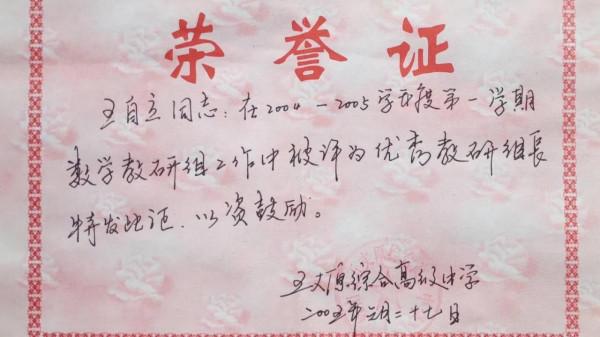 荣誉证
王自立同志：在2004-2005学年度第一学期
数学教研组工作中被评为优秀教研组长
特发此证，以资鼓励。
五丈原综合高级中学
二00五年元月二十七日